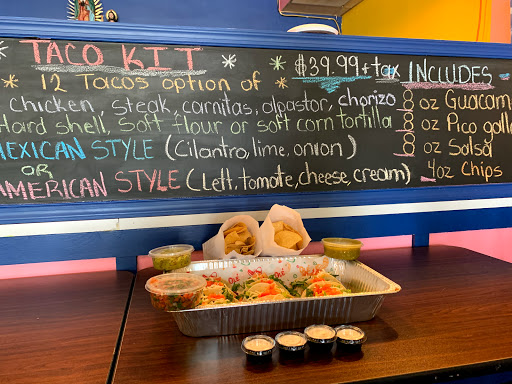 TACO KIT * * $39.99+tax INCLUDES
* 12 Tacos option of * 8 oz Guacam
chicken, steak, carnitas, alpastor, chorizo 8 oz Pico gall
Hard shell, soft flour or soft corn tortilla 8 oz Salsa
MEXICAN STYLE (Cilantro, lime, onion) 4oz Chips
OR
AMERICAN STYLE (Lett, tomate, cheese, cream)